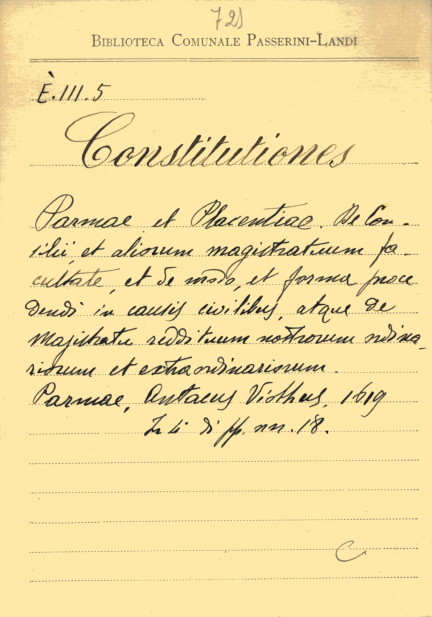 721
BIBLIOTECA COMUNALE PASSERINI-LANDI
È.III.5
Constitutiones
Parmae et Placentiae. De Con-
silii, et aliorum magistratuum fa-
cultate, et de modo, et forma proce
dendi in causis civilibus, atque de
Magistratu reddituum nostrorum ordina-
riorum et extraordinariorum.
Parmae, Antaeus Viothus, 1619
In 4 di pp. nn. 18.
C